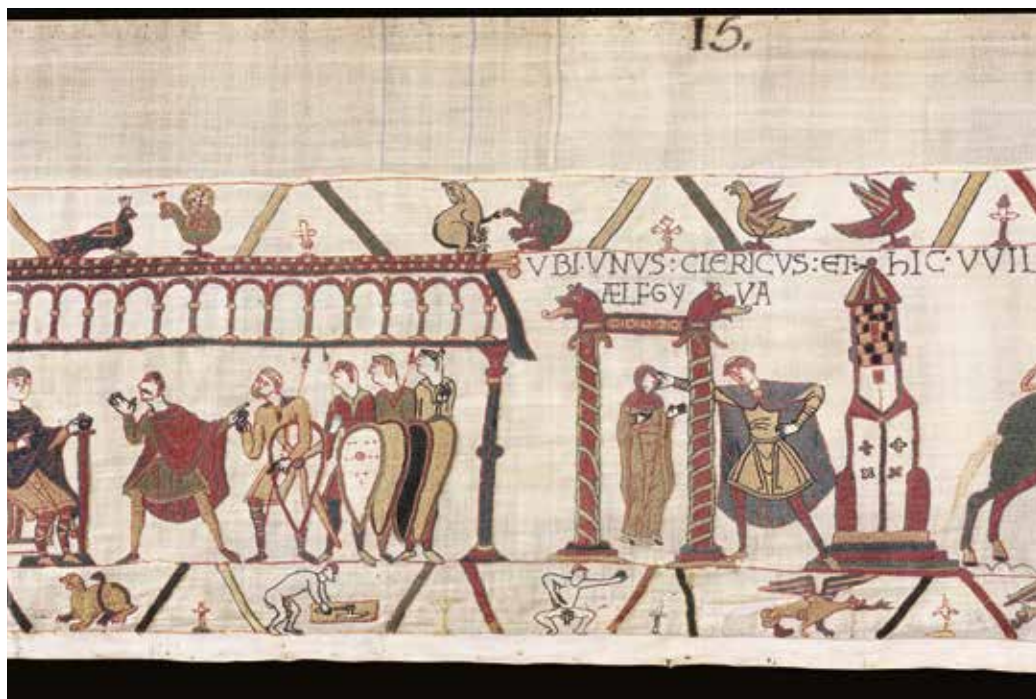 15.
VBI:VNVS:CLERICVS:ET·hIC·VVIL
ÆLFGYVA